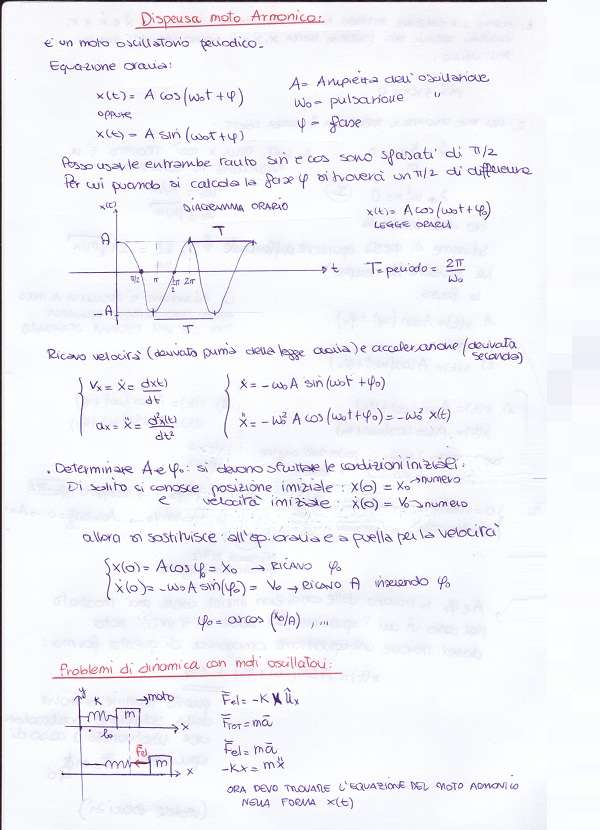 Dispensa moto Armonico:
è un moto oscillatorio periodico.
Equazione oraria:
x(t) = A cos(ω₀t + φ)
oppure
x(t) = A sin(ω₀t + φ)
A = Ampiezza dell'oscillazione
ω₀ = pulsazione "
φ = fase
Posso usarle entrambe tanto sin e cos sono sfasati di π/2
Per cui quando si calcola la fase φ si troverà un π/2 di differenza
x(t)
DIAGRAMMA ORARIO
T
A
-A
π/2 π 3π/2 2π
t
T
x(t) = A cos(ω₀t + φ₀)
LEGGE ORARIA
T = periodo = 2π/ω₀
Ricavo velocità (derivata prima della legge oraria) e accelerazione (derivata
seconda)
Vx = ẋ = dx(t)/dt
ax = ẍ = d²x(t)/dt²
ẋ = -ω₀ A sin(ω₀t + φ₀)
ẍ = -ω₀² A cos(ω₀t + φ₀) = -ω₀² x(t)
. Determinare A e φ₀: si devono sfruttare le condizioni iniziali:
Di solito si conosce posizione iniziale: x(0) = x₀ → numero
e velocità iniziale: ẋ(0) = V₀ → numero
allora si sostituisce all'eq. oraria e a quella per la velocità
x(0) = A cos φ₀ = x₀ → RICAVO φ₀
ẋ(0) = -ω₀ A sin(φ₀) = V₀ → RICAVO A inserendo φ₀
φ₀ = arcos (x₀/A) , ...
Problemi di dinamica con moti oscillatori:
y
K
→ moto
m
l₀
x
F̄el
m
x
F̄el = -K x ûx
F̄TOT = mā
F̄el = mā
-Kx = mẍ
ORA DEVO TROVARE L'EQUAZIONE DEL MOTO ARMONICO
NELLA FORMA x(t)